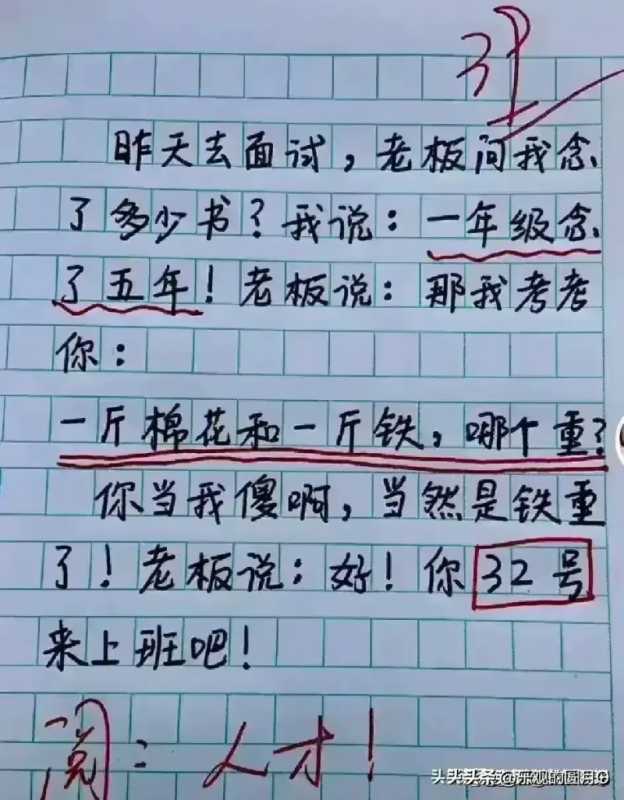 昨天去面试，老板问我念
了多少书？我说：一年级念
了五年！老板说：那我考考
你：
一斤棉花和一斤铁，哪个重？
你当我傻啊，当然是铁重
了！老板说：好！你32号
来上班吧！
阅：人才！